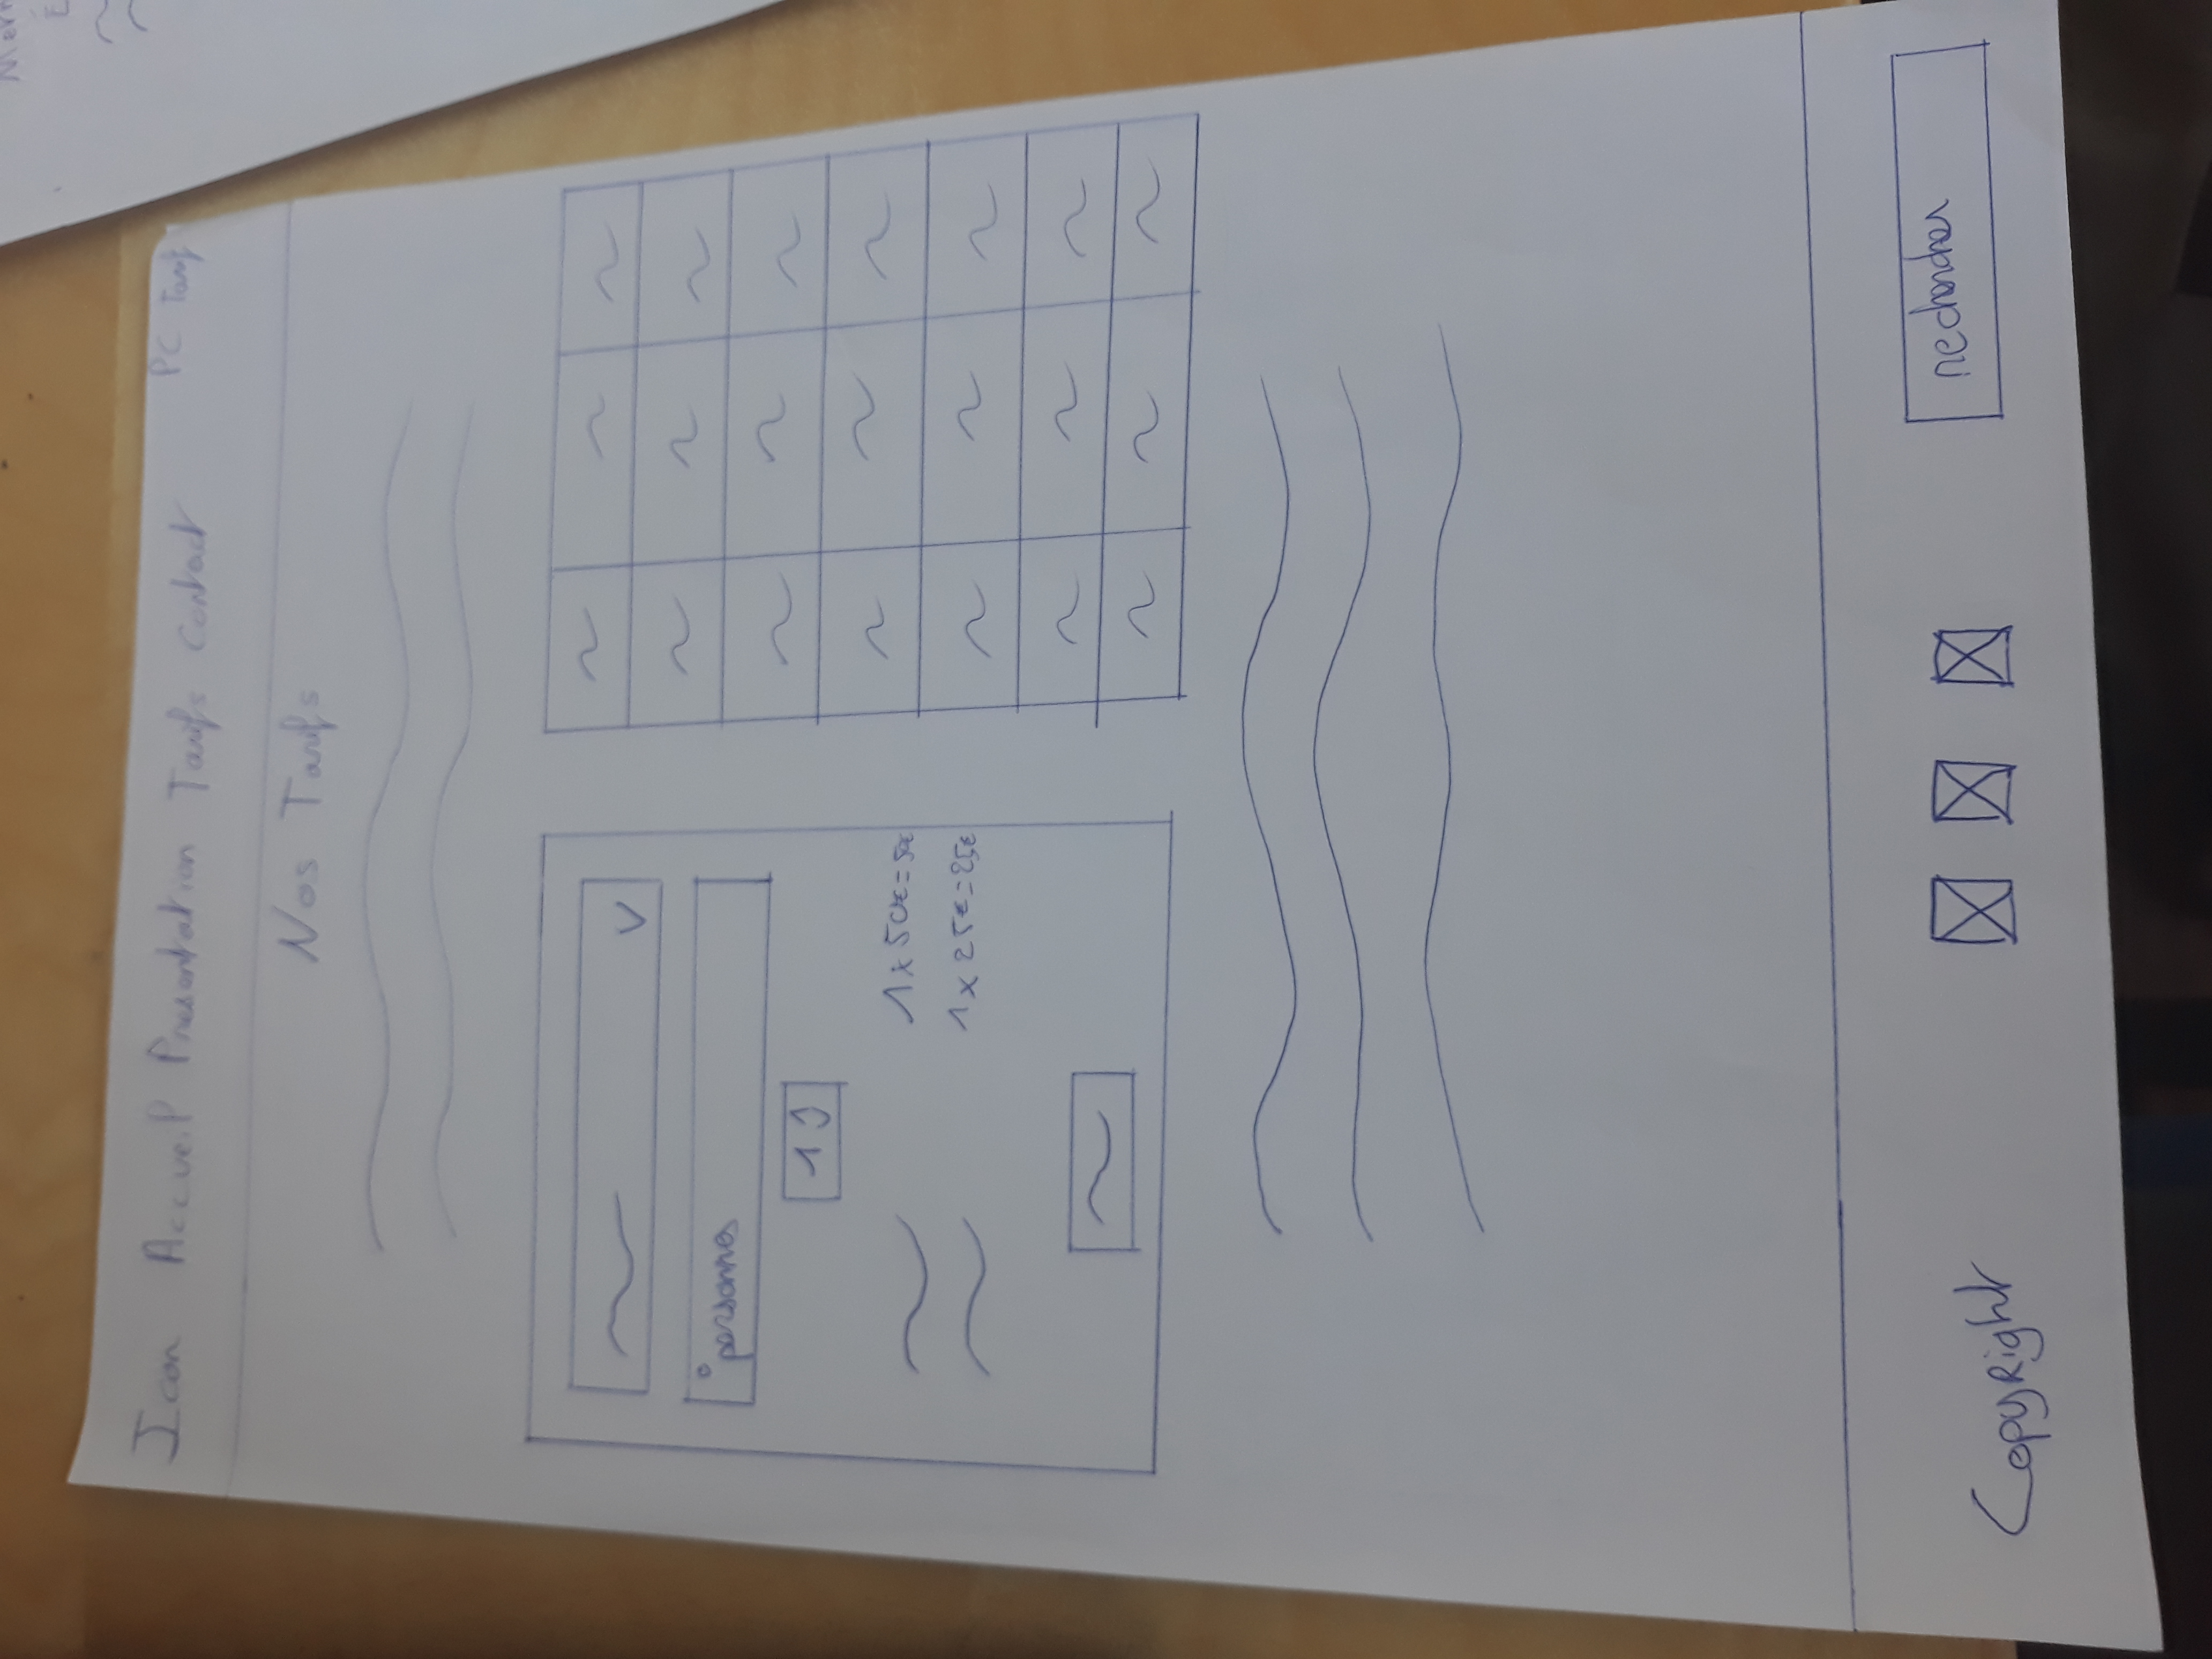 Icon Accueil Presentation Tarifs Contact
PC Tarif
Nos Tarifs
V
° personnes
1 J
1 x 50€ = 50€
1 x 25€ = 25€
Copyright
rechercher